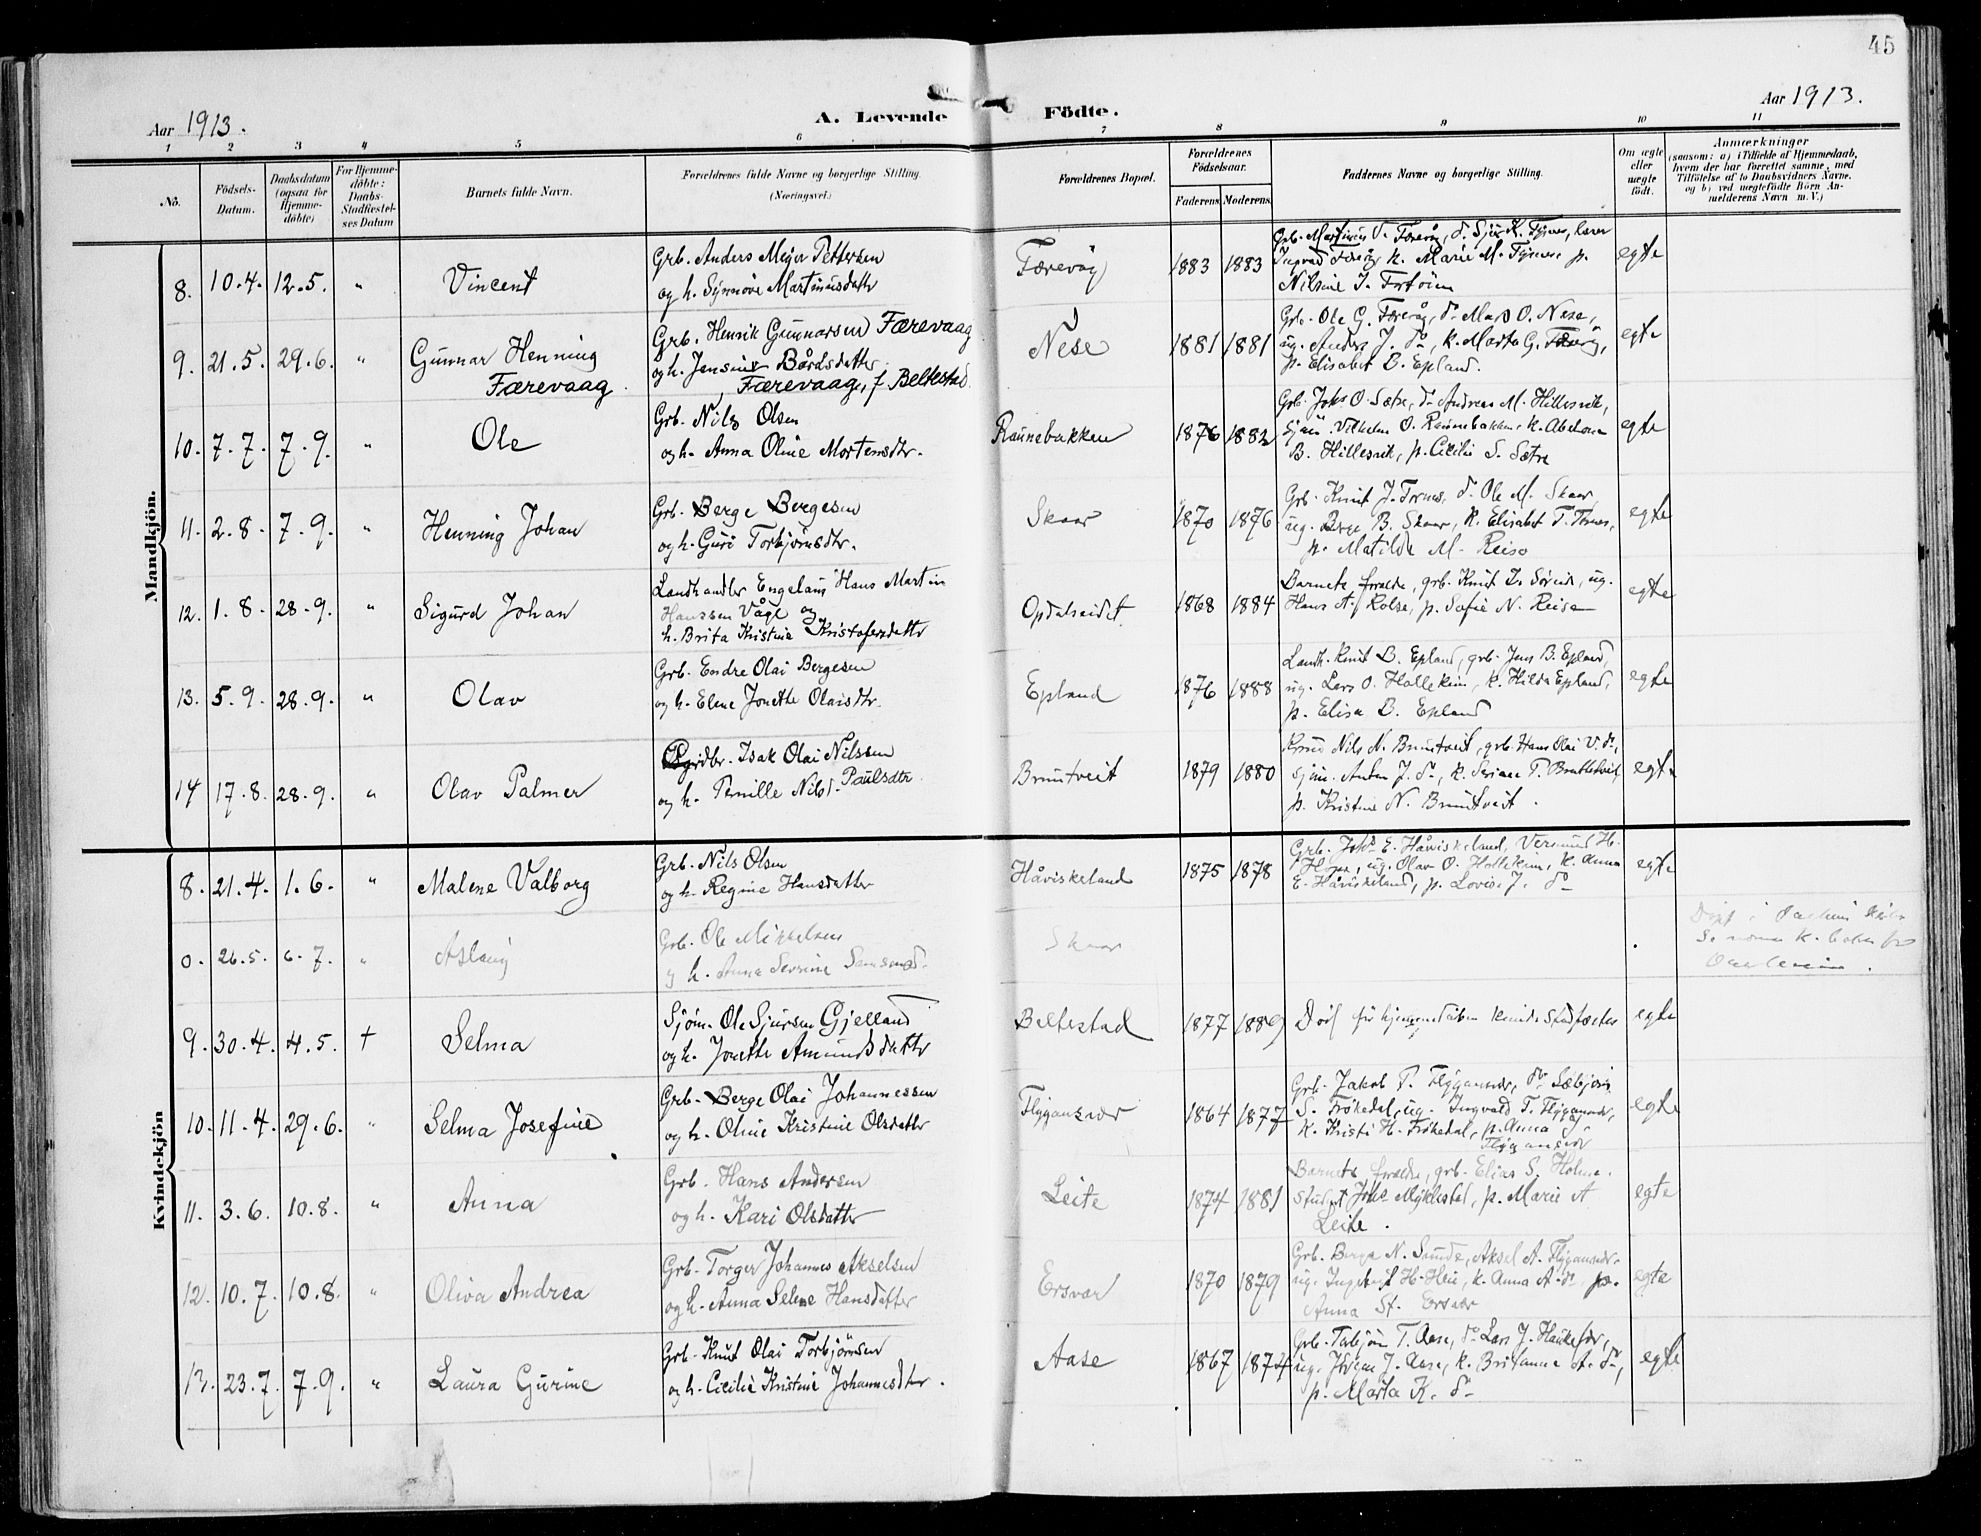 45
Aar 1913.
A. Levende Födte.
Aar 1913.
1 2 3 4 5 6 7 8 9 10 11
No.
Födsels-Datum.
Daabsdatum (ogsaa for Hjemme-döbte)
For Hjemme-döbte: Daabs-Stadfæstel-ses Datum
Barnets fulde Navn.
Forældrenes fulde Navne og borgerlige Stilling. (Næringsvei.)
Forældrenes Bopæl.
Forældrenes Födselsaar.
Faderens Moderens
Faddernes Navne og borgerlige Stilling.
Om ægte eller uægte födt.
Anmærkninger
(saasom: a) i Tilfælde af Hjemmedaab,
hvem der har forrettet samme, med
Tilföielse af to Daabsvidners Navne,
og b) ved uægtefödte Börn An-
melderens Navn m. V.)
Mandkjön.
8. 10.4. 12.5. " Vincent
Grb. Anders Meyer Pettersen
og h. Synnöve Martinusdatter
Færevåg 1883 1883
Nilsine J. Fortöien
egte
9. 21.5. 29.6. " Gunnar Henning
Færevaag
Grb. Henrik Gunnarsen Færevaag
og h. Jensine Bårdsdatter
Færevaag, f. Beltestad
Nese 1881 1881
Grb. Ole G. Færevåg, do Mass O. Nese,
ug. Anders J. do, k. Marta G. Færevåg,
p. Elisabet B. Epland.
egte
10. 7.7. 7.9. " Ole
Grb. Nils Olsen
og h. Anna Oline Mortensdtr.
Raunebakken 1876 1882
Grb. Johs O. Sætre, do Andreas M. Hillesvik,
sjöm. Vilhelm O. Raunebakken, k. Abelone
B. Hillesvik, p. Cecilie S. Sætre
egte
11. 2.8. 7.9. " Henning Johan
Grb. Berge Bergesen
og h. Guri Torbjörnsdtr.
Skaar 1870 1876
Grb. Knut J. Tornes, do Ole M. Skaar,
ug. Berge B. Skaar, k. Elisabet T. Tornes,
p. Matilde M. Reiso
egte
12. 1.8. 28.9. " Sigurd Johan
Landhandler Engelaus Hans Martin
Hanssen Våge og
h. Brita Kristine Kristofersdatter
Opdalseidet 1868 1884
Barnets forældre, grb. Knut
Hans A. Rolse, p. Sofie N. Reisen
egte
13. 5.9. 28.9. " Olav
Grb. Endre Olai Bergesen
og h. Elene Jonette Olaisdtr.
Epland 1876 1888
Landh. Knut B. Epland, grb. Jens B. Epland,
ug. Lars O. Hallekim, k. Hilda Epland,
p. Elisa B. Epland
egte
14 17.8. 28.9. " Olav Palmer
Grdbr. Isak Olai Nilssen
og h. Pernille Nils Paulsdtr
Bruntveit 1879 1880
Nils N. Bruntveit, grb. Hans Olai V. do,
sjöm. Anton J. do, k. Serine T. Brattetveit,
p. Kristine N. Bruntveit.
egte
Kvindekjön
8. 21.4. 1.6. " Malene Valborg
Grb. Nils Olsen
og h. Regine Hansdatter
Håviskeland 1875 1878
Grb. Johs E. Håviskeland, Vermund H.
Hope, ug. Olav O. Hallekim, k. Anna
E. Håviskeland, p. Lovise J. do
egte
0. 26.5. 6.7. " Aslaug
Grb. Ole Mikkelsen
og h. Anna Serine Samsonsd.
Skaar
Döpt i
9. 30.4. 4.5. † Selma
Sjöm. Ole Sjursen Gjelland
og h. Jonette Amundsdatter
Beltestad 1877 1889
Död för hjemmedåben kunde stadfæstes
egte
10. 11.4. 29.6. " Selma Josefine
Grb. Berge Olai Johannessen
og h. Oline Kristine Olsdatter
Flygansvær 1864 1877
Grb. Jakob P. Flygansvær, do Sæbjörn
S. Frökedal, ug. Ingvald T. Flygansvær,
k. Kristi H. Frökedal, p. Anna J.
Flygansvær
egte
11. 3.6. 10.8. " Anna
Grb. Hans Andersen
og h. Kari Olsdatter
Leite 1874 1881
Barnets forældre, grb. Elias S. Holme.
student Johs Myklestad, p. Marie A.
Leite.
egte
12. 10.7. 10.8. " Oliva Andrea
Grb. Torger Johannes Akselsen
og h. Anna Selene Hansdatter
Ersvær 1870 1879
Grb. Berge N. Sunde, Aksel A. Flygansvær,
ug. Ingebrigt H. Heie, k. Anna A. do p.
Anna St. Ersvær
egte
13. 23.7. 7.9. " Laura Gurine
Grb. Knut Olai Torbjörnsen
og h. Cicilie Kristine Johannesdtr.
Aase 1867 1874
Grb. Torbjörn T. Aase, do Lars J. Haukefær,
ug. Jörgen J. Aase, k. Britanna A. do,
p. Marta K. do
egte